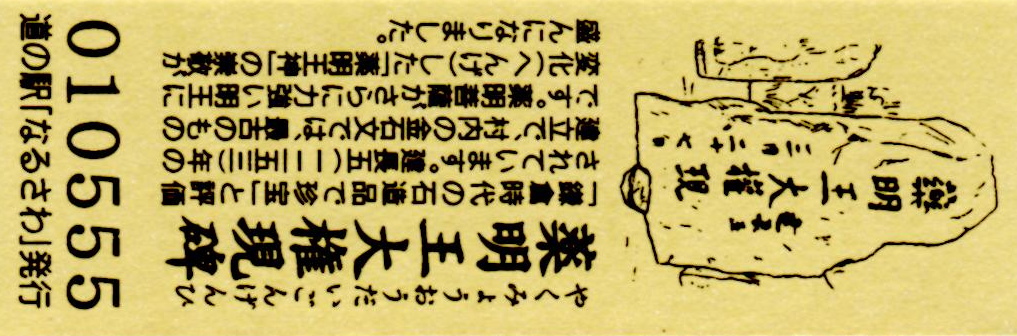 やくみょうおうだいごんげんひ
薬明王大権現碑
「鎌倉時代の石造品で珍宝」と評価
されています。建長五(一二五三)年の
建立で、村内の金石文では、最古のもの
です。薬明菩薩がさらに力強い明王に
変化(へんげ)した「薬明王神」の崇敬が
盛んになりました。
藥明王大権現
010555
道の駅「なるさわ」発行